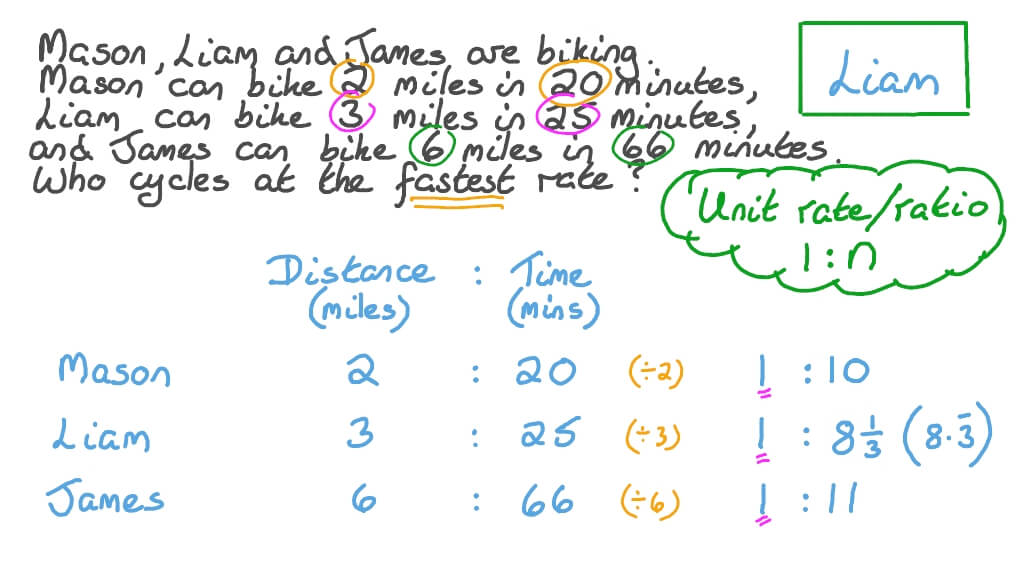 Mason, Liam and James are biking.
Mason can bike 2 miles in 20 minutes,
Liam can bike 3 miles in 25 minutes,
and James can bike 6 miles in 66 minutes.
Who cycles at the fastest rate?
Liam
Unit rate/ratio
1:n
Distance : Time
(miles) (mins)
Mason 2 : 20 (÷2) 1 : 10
Liam 3 : 25 (÷3) 1 : 8 1/3 (8.3̅)
James 6 : 66 (÷6) 1 : 11